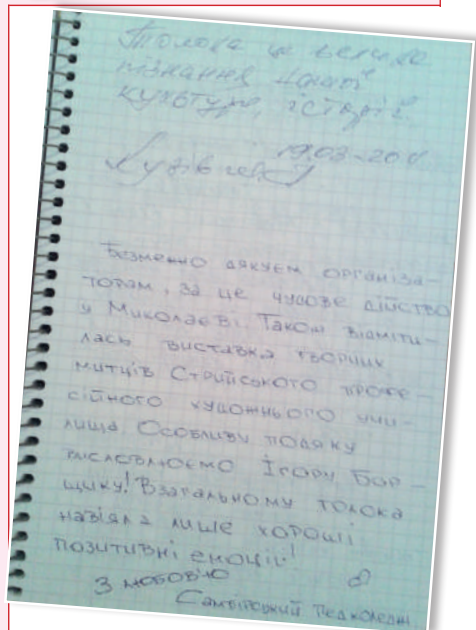 Толока це велике
пізнання нашої
культури, історії.
19.03-20
Безмежно дякуєм організа-
торам, за це чудове дійство
у Миколаєві. Також відміти-
лась виставка творчих
митців Стрийського профе-
сійного художнього учи-
лища. Особливу подяку
висловлюємо Ігору Бор-
щику! Взагальному толока
навіяла лише хороші
позитивні емоції!
З любов'ю
Самбірський педколедж.